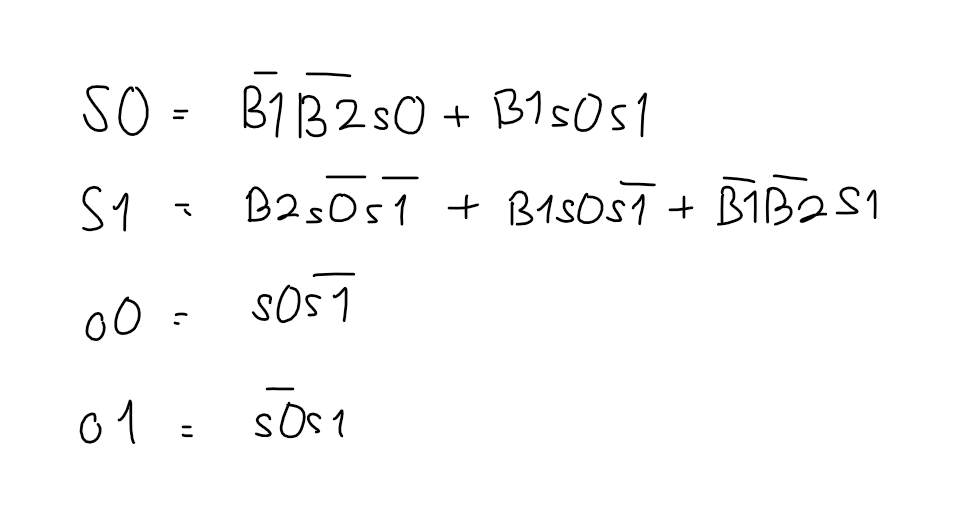 S0 = B̅1̅ B̅2̅ s0 + B1 s0 s1
S1 = B2 s̅0̅ s̅1̅ + B1 s0 s̅1̅ + B̅1̅ B̅2̅ S1
o0 = s0 s̅1̅
o1 = s̅0̅ s1